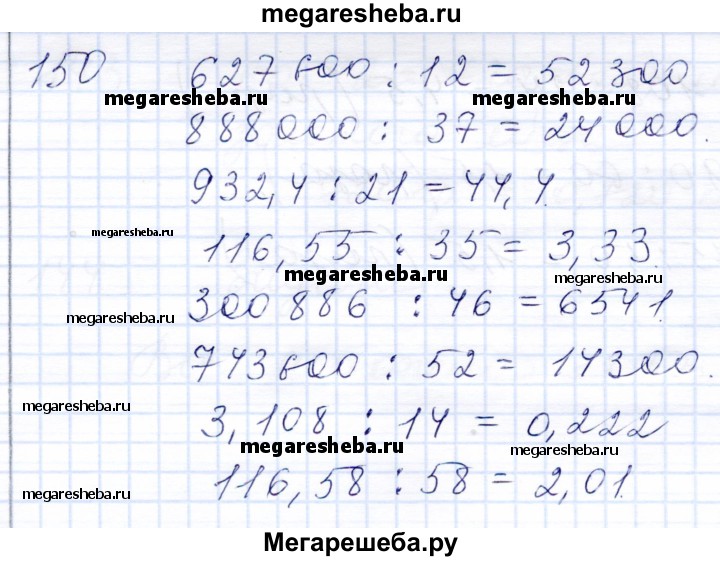 megaresheba.ru
150 627 600 : 12 = 52 300
megaresheba.ru megaresheba.ru
888 000 : 37 = 24 000.
932,4 : 21 = 44,4.
megaresheba.ru
116,55 : 35 = 3,33.
megaresheba.ru
300 886 : 46 = 6541.
megaresheba.ru megaresheba.ru
743 600 : 52 = 14 300.
megaresheba.ru
3,108 : 14 = 0,222
megaresheba.ru megaresheba.ru
116,58 : 58 = 2,01.
megaresheba.ru
Мегарешеба.ру